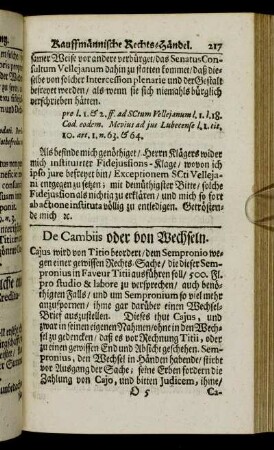 Kauffmännische Rechts-Händel. 217
samer Weise vor andere verbürget / das Senatus Con-
sultum Vellejanum dahin zu statten kommet / daß diesel-
be von solcher Intercession plenarie und der Gestalt
befreyet werden / als wenn sie sich niemahls bürglich
verschrieben hätten.
pro l. 1. & 2. ff. ad SCtum Vellejanum l. 1. l. 18.
Cod. eodem. Mevius ad jus Lubecense l. 1. tit.
10. art. 1. n. 63. & 64.
Als befinde mich genöhtiget / Herrn Klägers wider
mich instituirter Fidejussions-Klage / wovon ich
ipso jure befreyet bin / Exceptionem SCti Velleja-
ni entgegen zu setzen; mit demüthigster Bitte / solche
Fidejussion als nichtig zu erklären / und mich so fort
ab actione instituta völlig zu entledigen. Getrösten-
de mich ꝛc.
De Cambiis oder von Wechseln.
Cajus wird von Titio beordert / dem Sempronio we-
gen einer gewissen Rechts-Sache / die dieser Sem-
pronius in Faveur Titii ausführen soll / 500. Rl.
pro studio & labore zu versprechen / auch benö-
thigten Falls / und um Sempronium so viel mehr
anzuspornen / ihme gar darüber einen Wechsel-
Brief auszustellen. Dieses thut Cajus, und
zwar in seinen eigenen Nahmen / ohne in den Wech-
sel zu gedencken / daß es vor Rechnung Titii, oder
zu einen gewissen End und Absicht geschehen. Sem-
pronius, den Wechsel in Händen habende / stirbt
vor Ausgang der Sache / seine Erben fordern die
Zahlung von Cajo, und bitten Judicem, ihme /
O 5 Ca-